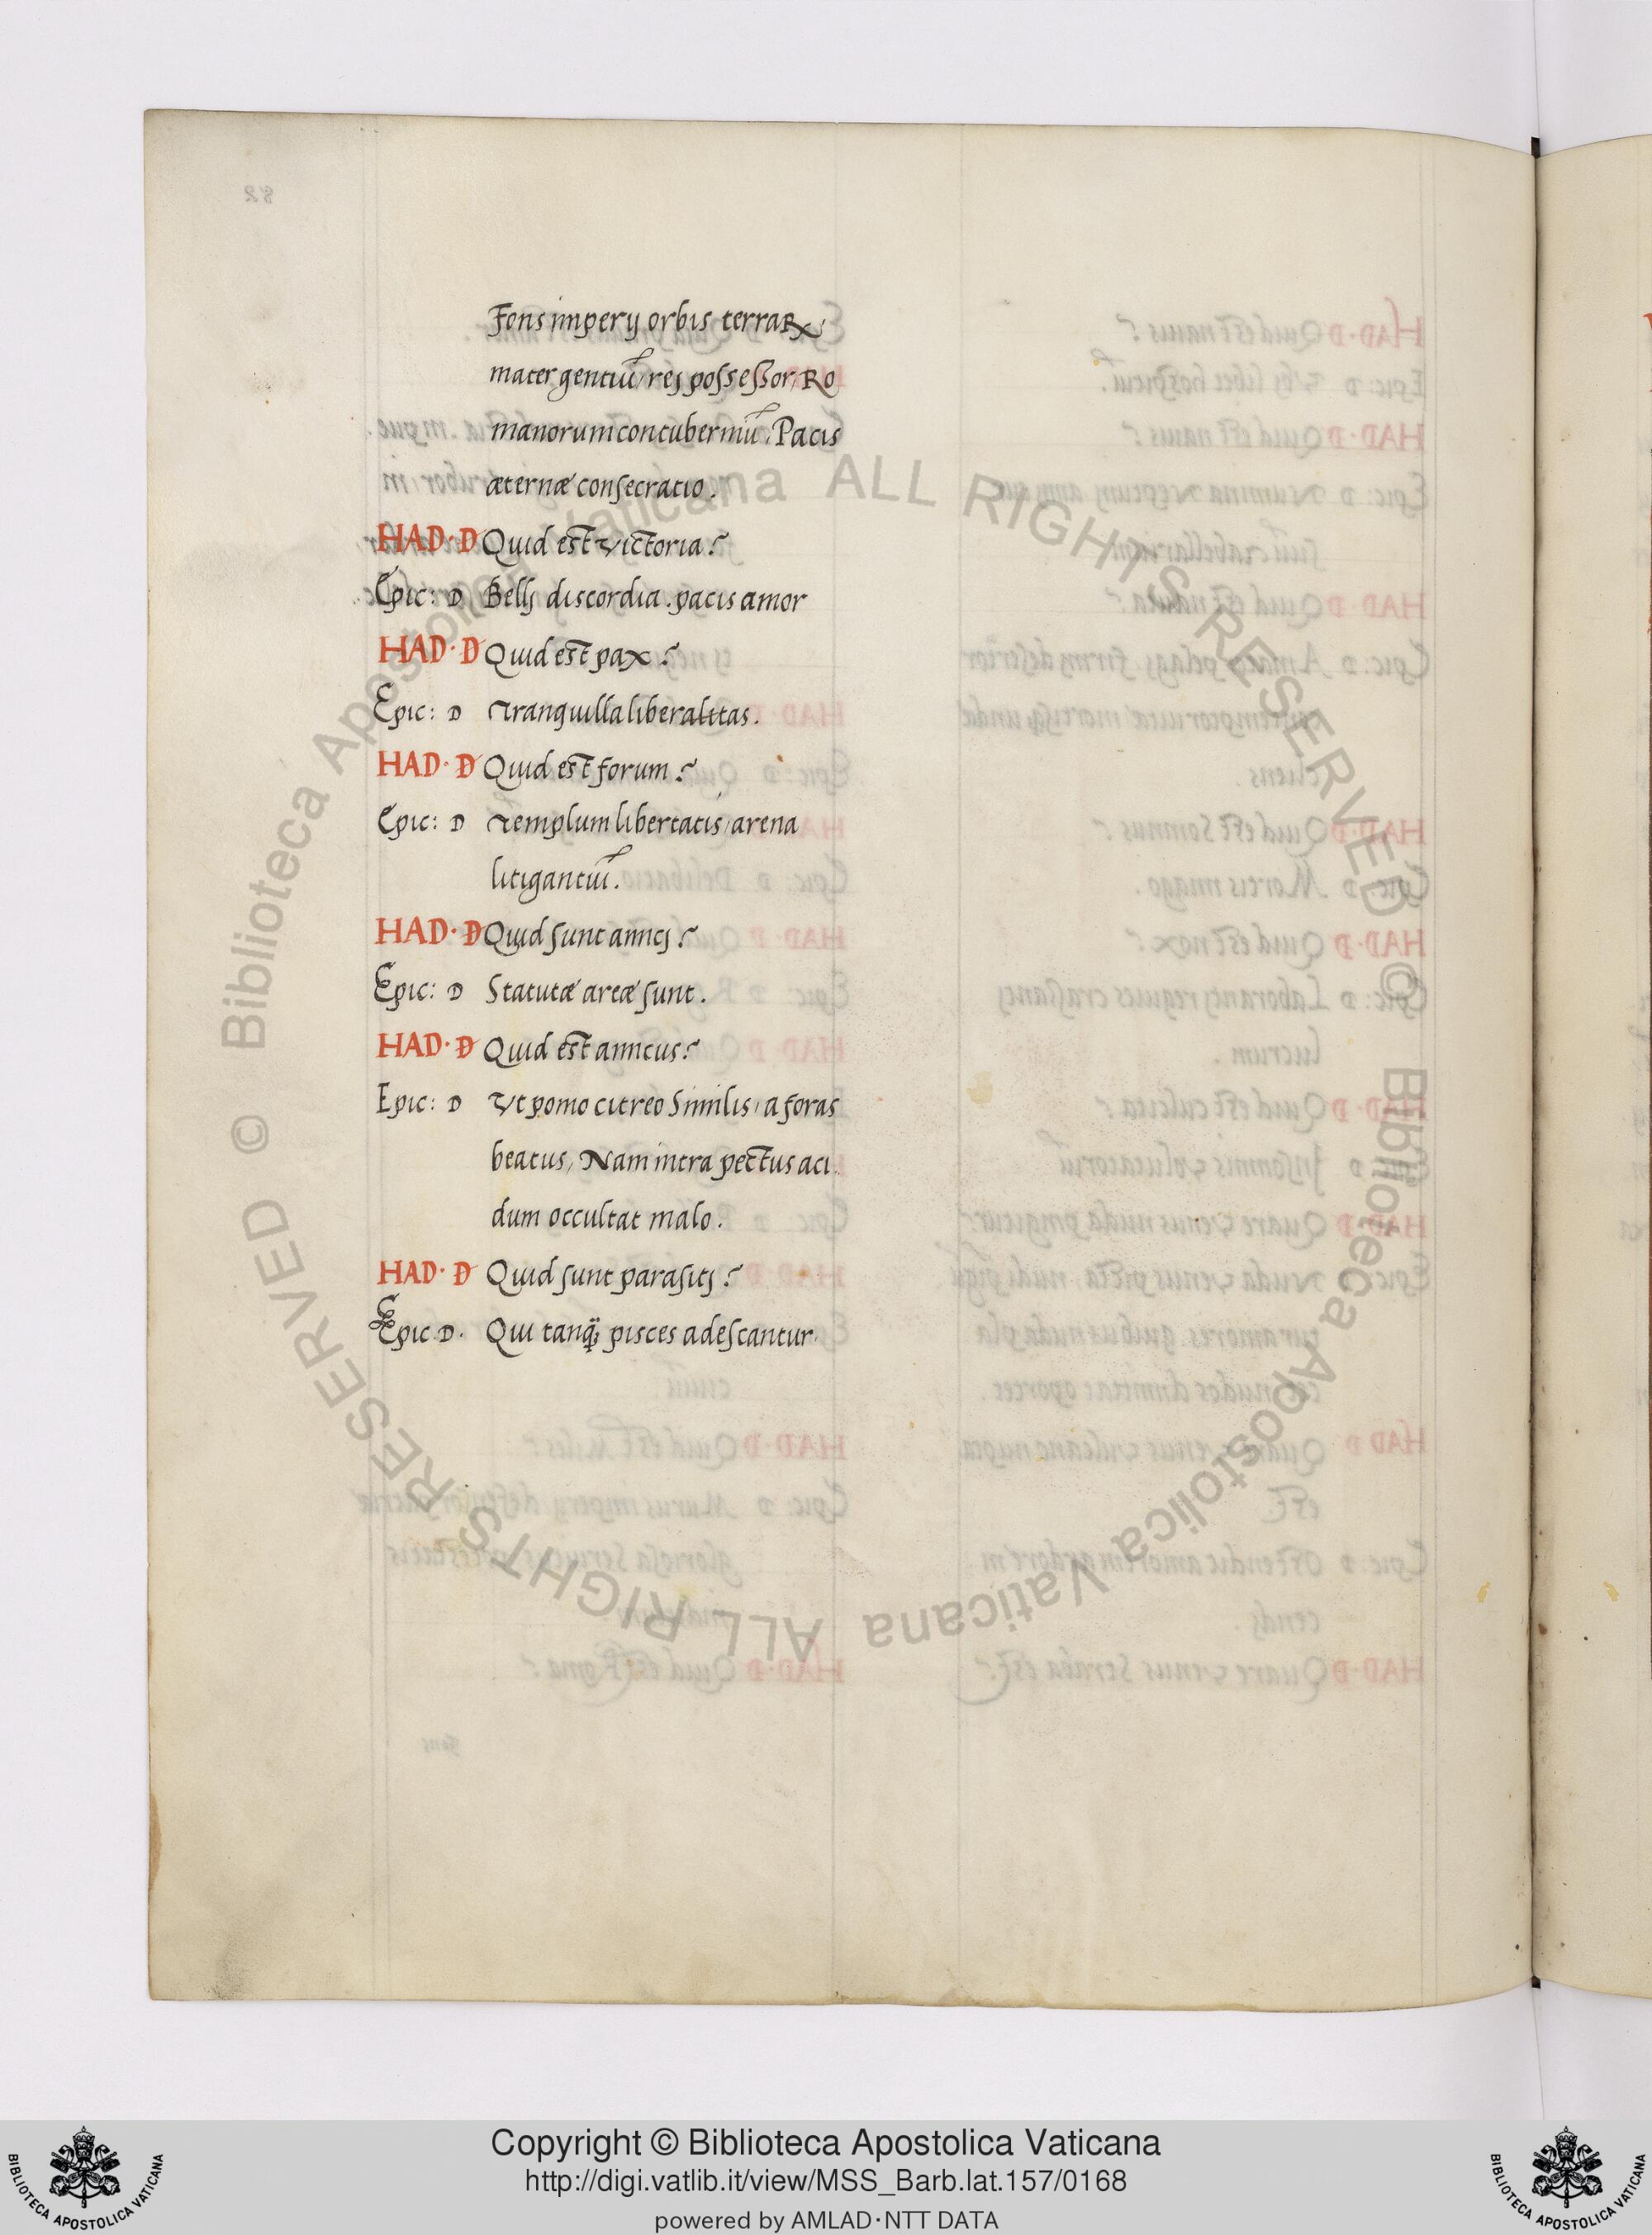 Fons imperij orbis terraꝝ,
mater gentiū, rej possessor, Ro
manorum contuberniū, Pacis
æternæ consecratio.
HAD· D Quid est victoria?
Epic: D Bellj discordia. pacis amor
HAD· D Quid est pax?
Epic: D Tranquilla liberalitas.
HAD· D Quid est forum?
Epic: D Templum libertatis, arena
litigantiū.
HAD· D Quid sunt amicj?
Epic: D Statutæ artæ sunt.
HAD· D Quid est amicus?
Epic: D Vt pomo citreo Similis, a foras
beatus, Nam intra pectus aci
dum occultat malo.
HAD· D Quid sunt parasitj?
Epic D. Qui tanq̃ pisces adescantur.
© Biblioteca Apostolica Vaticana ALL RIGHTS RESERVED
© Biblioteca Apostolica Vaticana ALL RIGHTS RESERVED
BIBLIOTECA APOSTOLICA VATICANA
Copyright © Biblioteca Apostolica Vaticana
http://digi.vatlib.it/view/MSS_Barb.lat.157/0168
powered by AMLAD·NTT DATA
BIBLIOTECA APOSTOLICA VATICANA